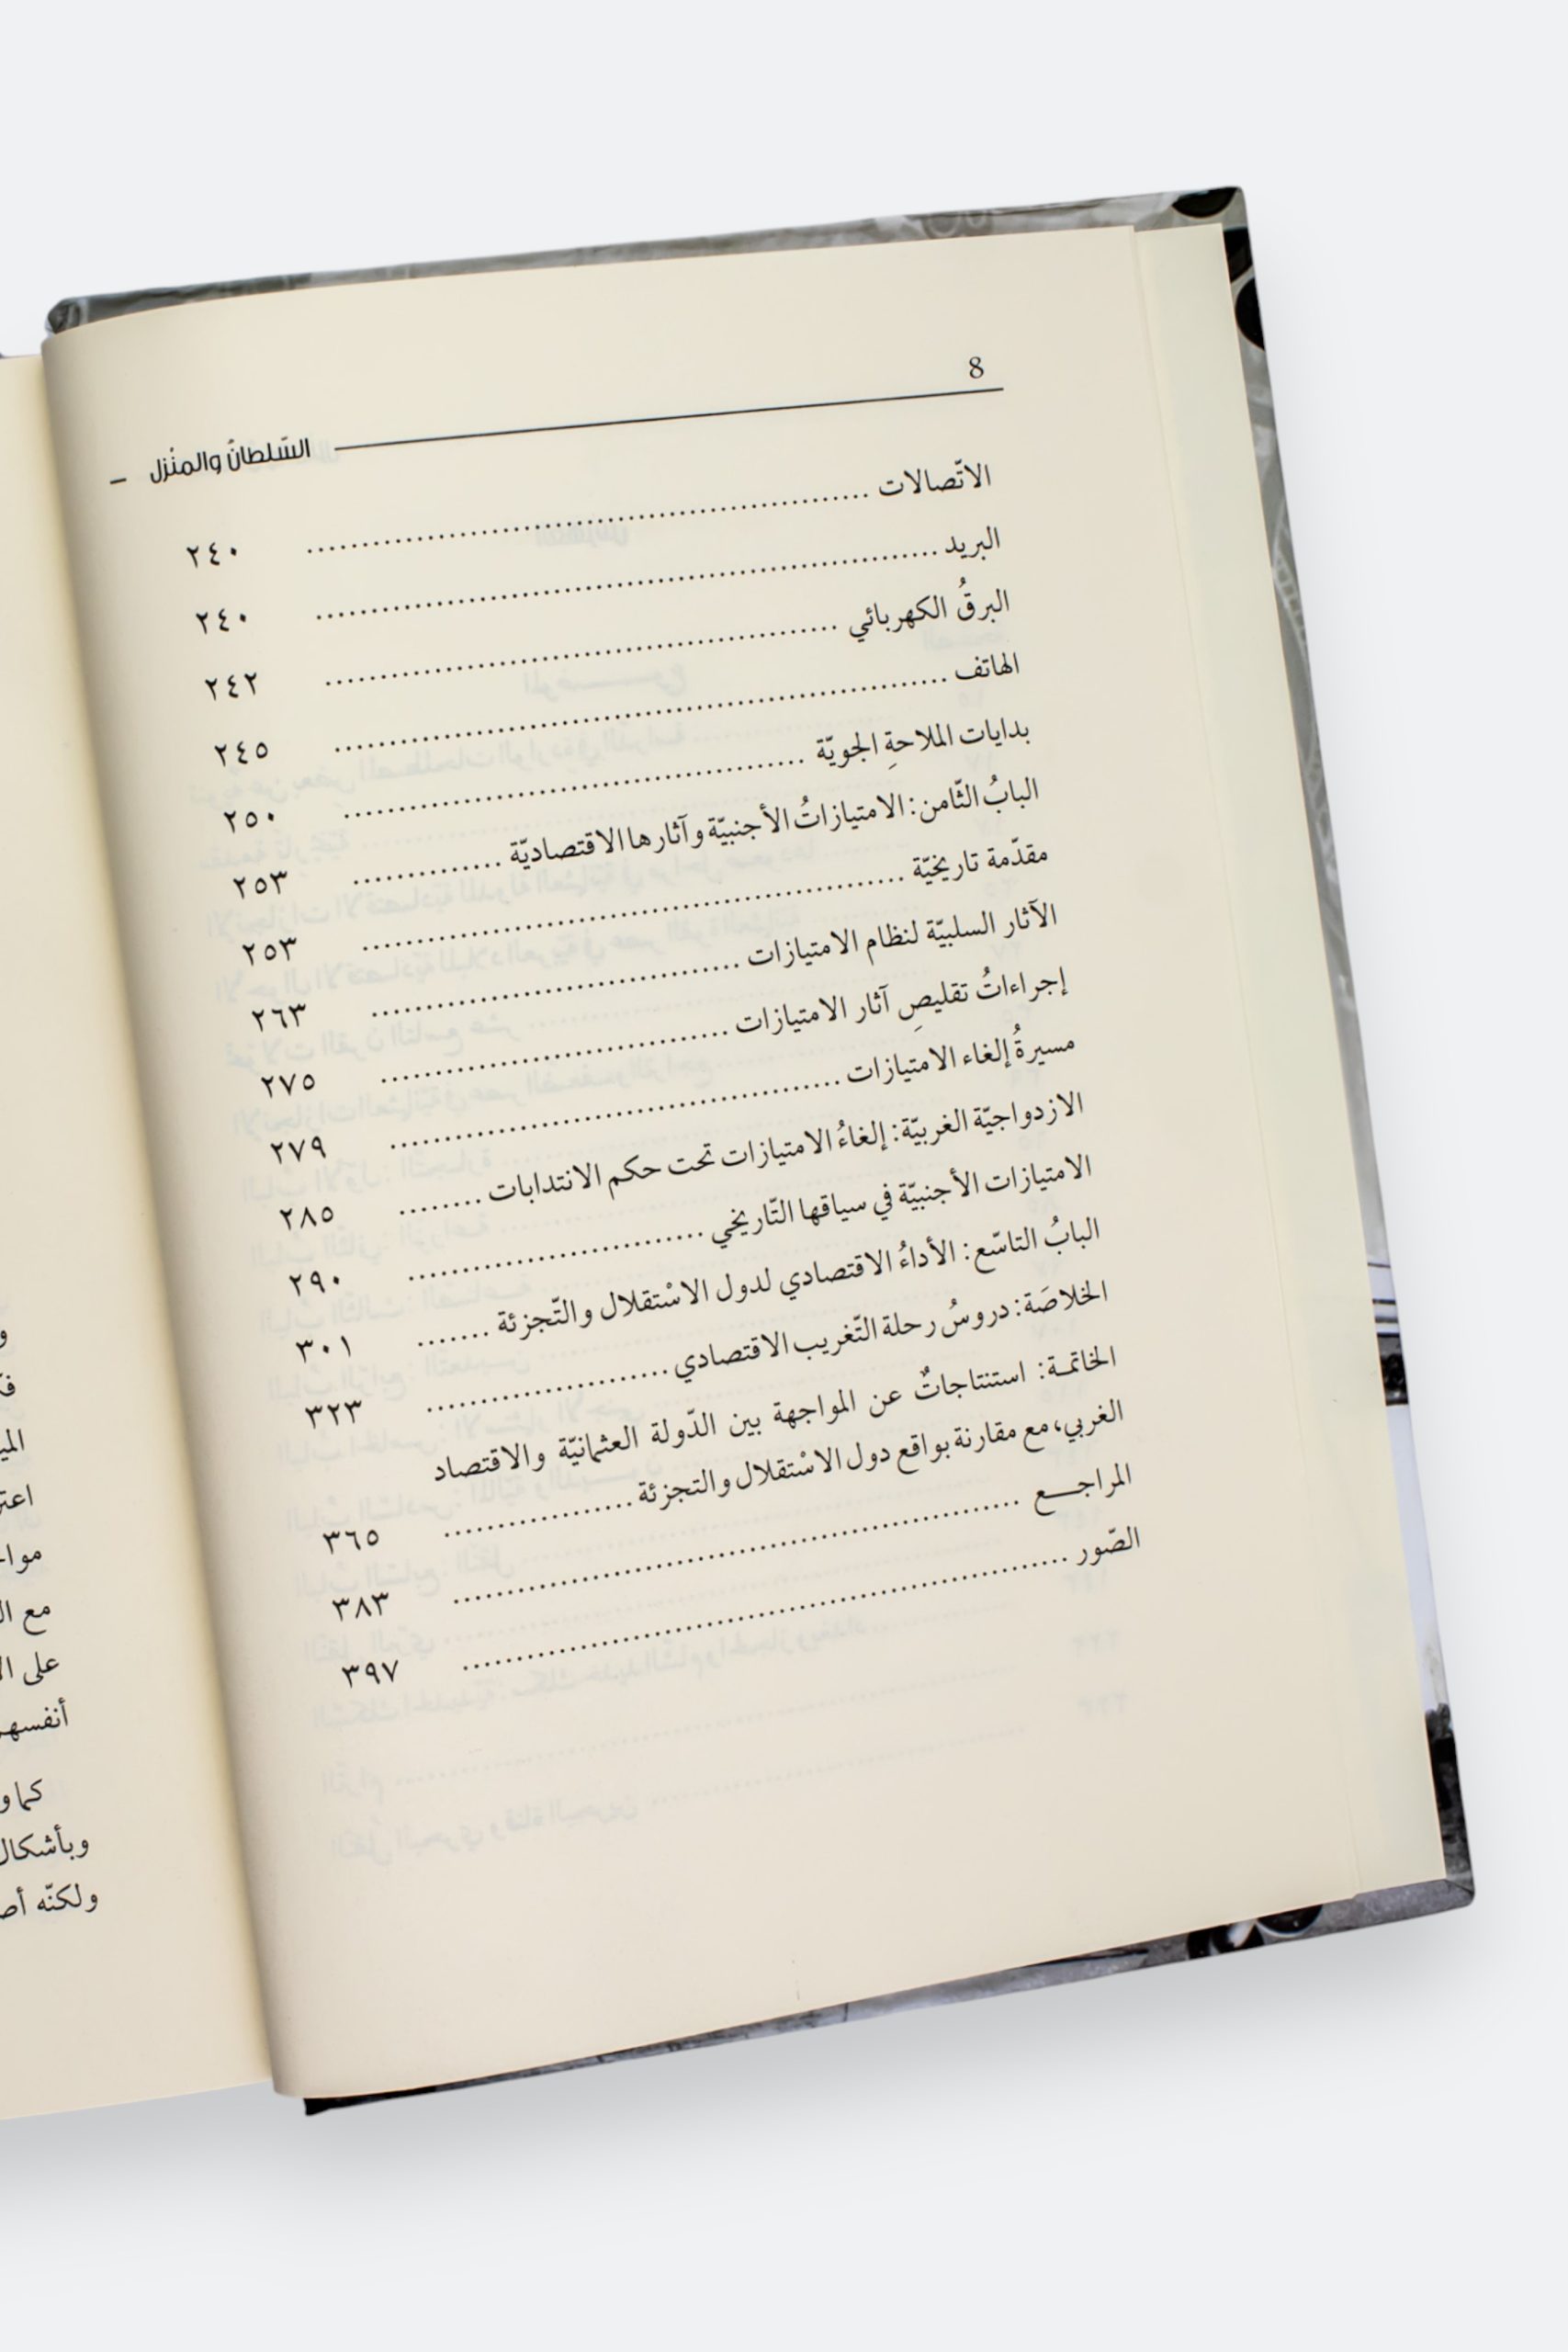 8
السّلطانُ والمنْزل
الاتّصالات ........ ٢٤٠
البريد ........ ٢٤٠
البرقُ الكهربائي ........ ٢٤٢
الهاتف ........ ٢٤٥
بدايات الملاحةِ الجويّة ........ ٢٥٠
البابُ الثّامن: الامتيازاتُ الأجنبيّة وآثارها الاقتصاديّة ........ ٢٥٣
مقدّمة تاريخيّة ........ ٢٥٣
الآثار السلبيّة لنظام الامتيازات ........ ٢٦٣
إجراءاتُ تقليصِ آثار الامتيازات ........ ٢٧٥
مسيرةُ إلغاء الامتيازات ........ ٢٧٩
الازدواجيّة الغربيّة: إلغاءُ الامتيازات تحت حكم الانتدابات ........ ٢٨٥
الامتيازات الأجنبيّة في سياقها التّاريخي ........ ٢٩٠
البابُ التاسّع: الأداءُ الاقتصادي لدول الاسْتقلال والتّجزئة ....... ٣٠١
الخلاصَة: دروسُ رحلة التّغريب الاقتصادي ........ ٣٢٣
الخاتمـة: استنتاجاتٌ عن المواجهة بين الدّولة العثمانيّة والاقتصاد
الغربي، مع مقارنة بواقع دول الاسْتقلال والتجزئة ........ ٣٦٥
المراجـــع ........ ٣٨٣
الصّور ........ ٣٩٧
مع
على
أنفسهم
كما
وبأشكال
ولكنّه